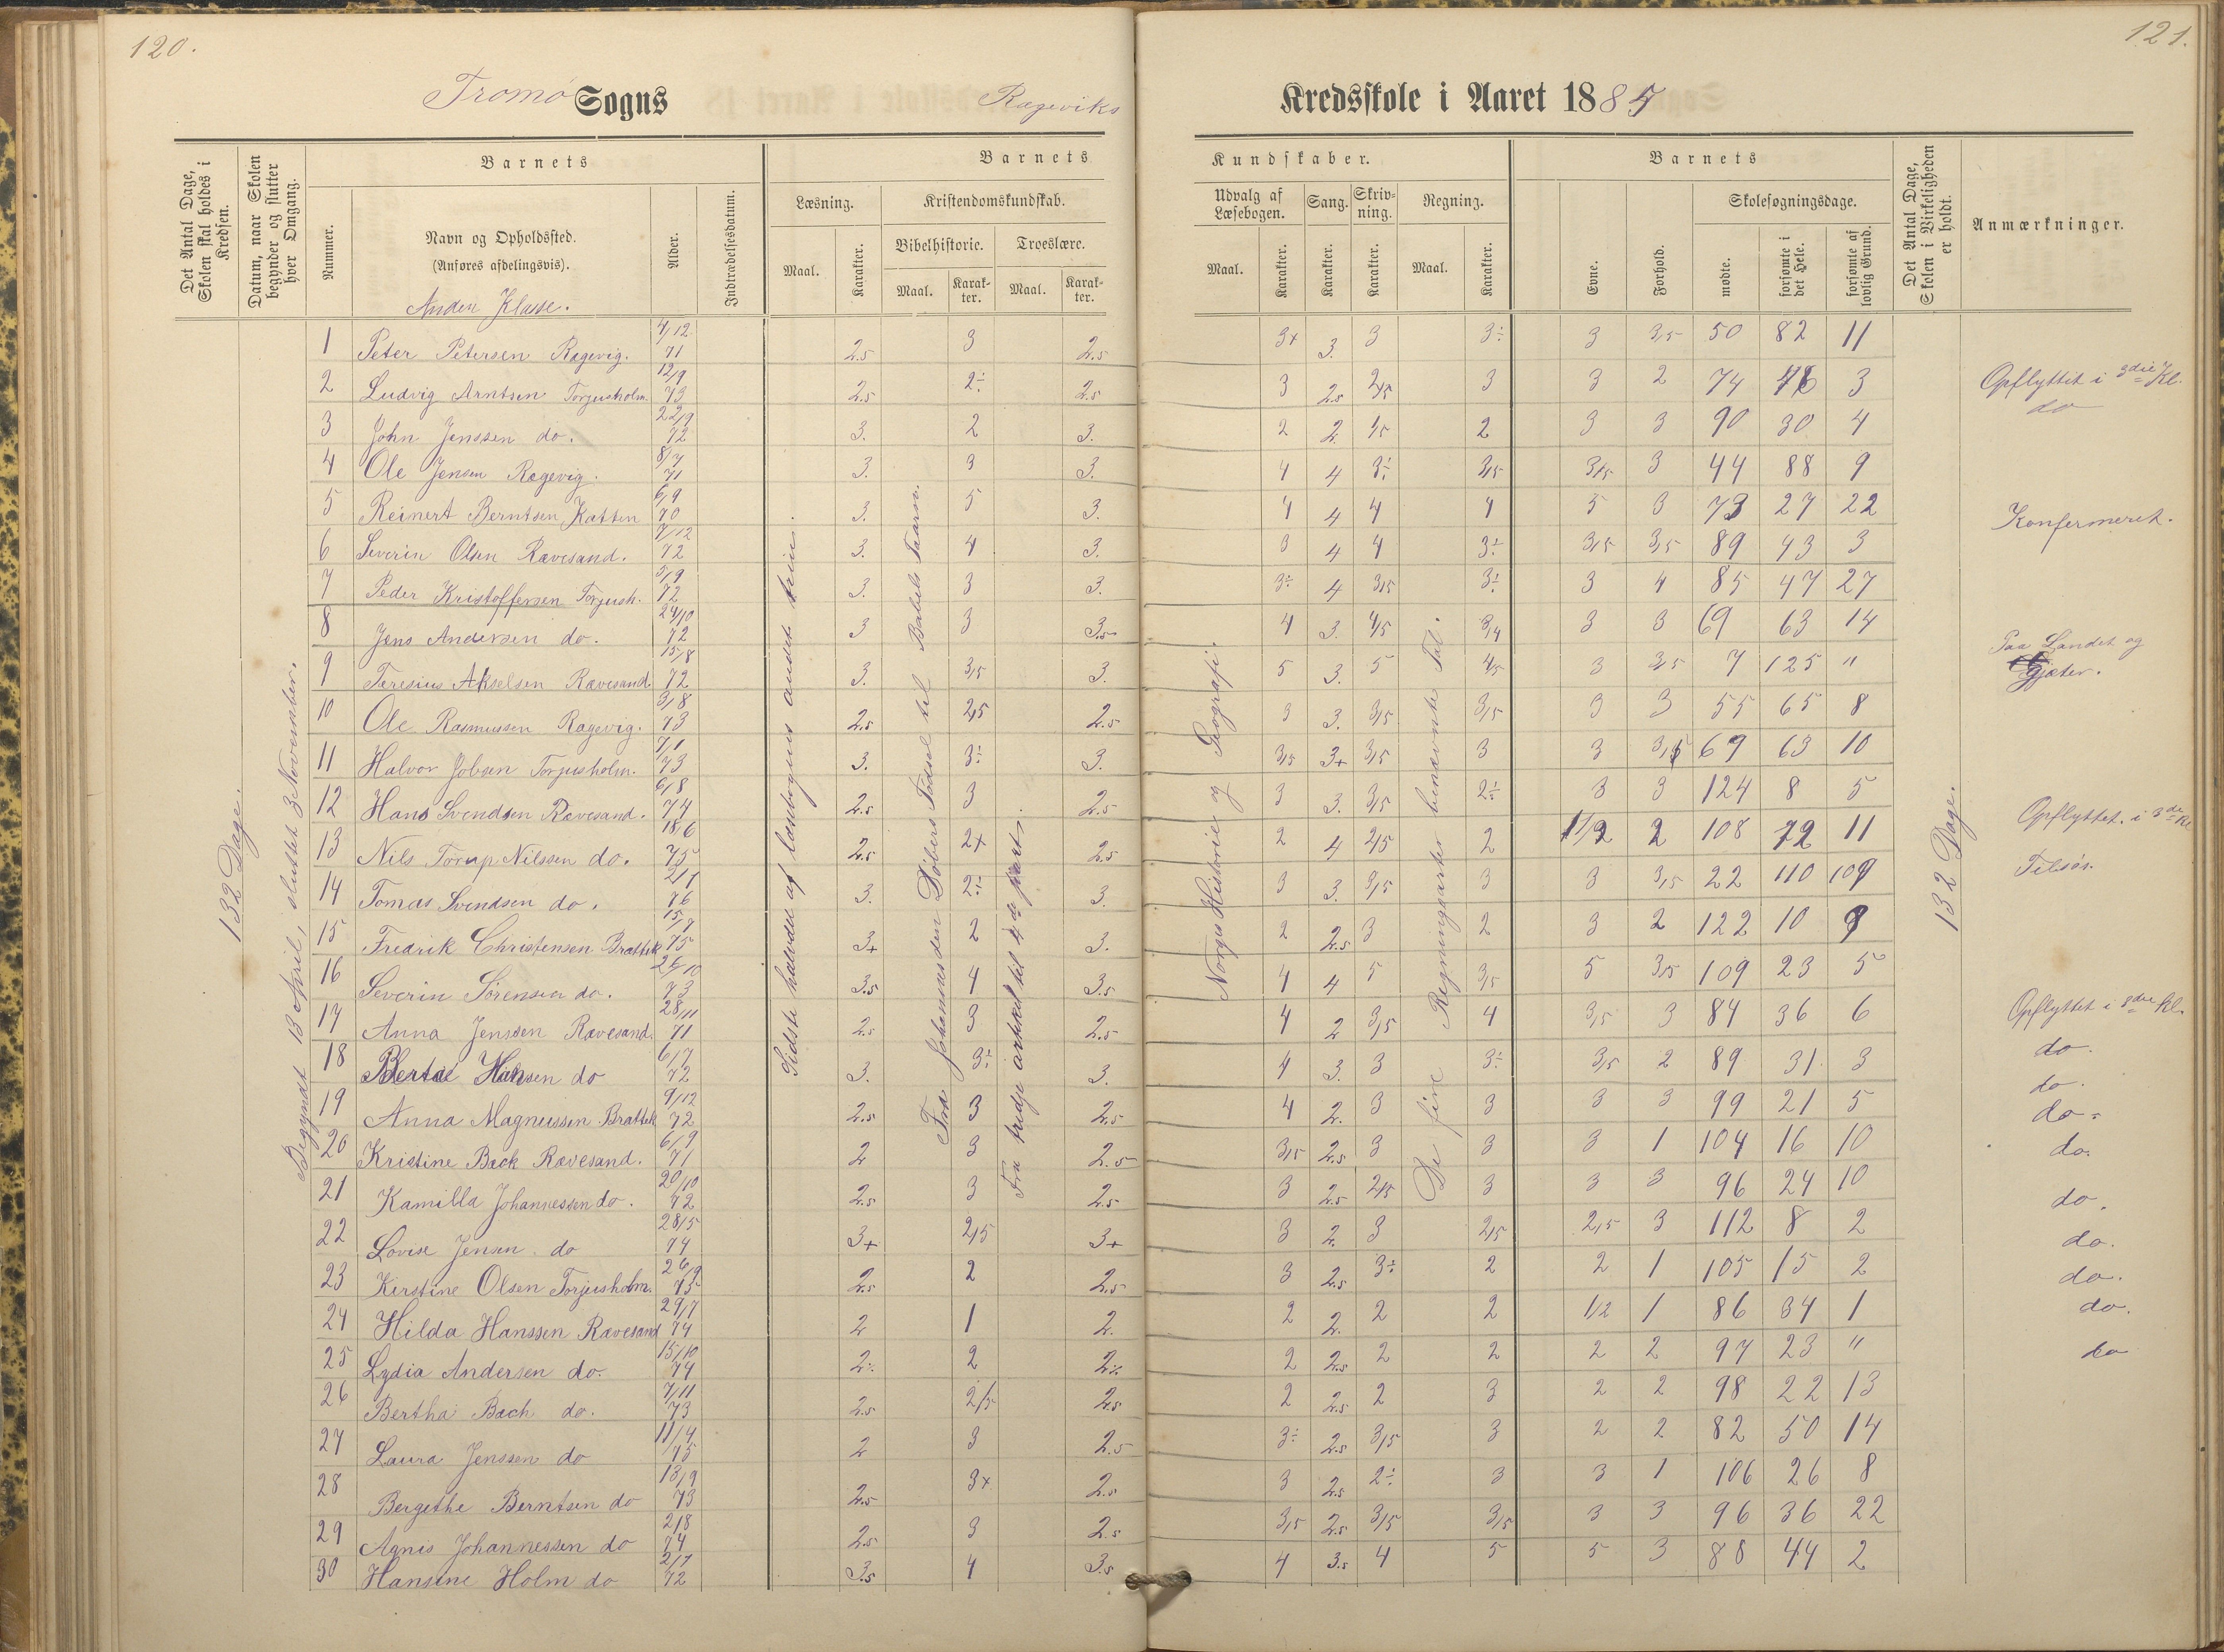 120.
Tromø Sogns
Rageviks
Det Antal Dage, Skolen skal holdes i Kredsen.
Datum, naar Skolen begynder og slutter hver Omgang.
Barnets
Nummer.
Navn og Opholdssted.
(Anføres afdelingsvis).
Anden Klasse.
Alder.
Indtrædelsesdatum.
Barnets
Læsning.
Maal.
Karakter.
Kristendomskundskab.
Bibelhistorie.
Maal.
Karakter.
Troeslære.
Maal.
Karakter.
132 Dage.
Begyndt 13 April, sluttet 3 November.
Sidste halvdel af læsebogens andet trin.
Fra Johannes den Døbers Fødsel til Babels Taarn.
Fra tredje artikel til 4de part.
1 Peter Petersen Ragevig. 4/12 71 2.5 3 2.5
2 Ludvig Arntsen Torjusholm. 12/9 73 2.5 2÷ 2.5
3 John Jenssen do. 22/9 72 3. 2 3.
4 Ole Jensen Ragevig. 8/7 71 3. 3 3.
5 Reinert Berntsen Katten 6/9 70 3. 5 3.
6 Severin Olsen Rævesand. 7/12 72 3. 4 3.
7 Peder Kristoffersen Torjush. 5/9 72 3. 3 3.
8 Jens Andersen do. 24/10 72 3 3 3.5
9 Teresius Akselsen Rævesand 15/8 72 3. 3,5 3.
10 Ole Rasmussen Ragevig. 3/8 73 2.5 2,5 2.5
11 Halvor Jobsen Torjusholm. 7/1 73 3. 3÷ 3.
12 Hans Svendsen Rævesand. 6/8 74 2.5 3 2.5
13 Nils Torup Nilssen do. 18/6 75 2.5 2+ 2.5
14 Tomas Svendsen do. 2/7 76 3. 2÷ 3.
15 Fredrik Christensen Brattek 15/7 75 3+ 2 3.
16 Severin Sørensen do. 26/10 73 3.5 4 3.5
17 Anna Jenssen Rævesand. 28/11 71 2.5 3 2.5
18 Berta Hansen do 6/7 72 3. 3÷ 3.
19 Anna Magnussen Brattek 9/12 72 2.5 3 2.5
20 Kristine Back Rævesand. 6/9 71 2 3 2.5
21 Kamilla Johannessen do. 20/10 72 2.5 3 2.5
22 Lovise Jensen do 28/5 74 3+ 2,5 3+
23 Kirstine Olsen Torjusholm. 26/9 75 2.5 2 2.5
24 Hilda Hanssen Rævesand 29/7 74 2 1 2.
25 Lydia Andersen do. 15/10 74 2÷ 2 2÷
26 Bertha Bach do. 7/11 73 2.5 2/5 2.5
27 Laura Jenssen do 11/4 75 2 3 2.5
28 Bergethe Berntsen do 13/9 73 2.5 3+ 2.5
29 Agnis Johannessen do 2/8 74 2.5 3 2.5
30 Hansine Holm do 2/7 72 3.5 4 3.5
121.
Kredsskole i Aaret 1885
Kundskaber.
Udvalg af Læsebogen.
Maal.
Karakter.
Sang.
Karakter.
Skrivning.
Karakter.
Regning.
Maal.
Karakter.
Barnets
Evne.
Forhold.
Skolesøgningsdage.
mødte.
forsømte i det Hele.
forsømte af lovlig Grund.
Det Antal Dage, Skolen i Virkeligheden er holdt.
Anmærkninger.
Norges Historie og Geografi.
De fire Regningsarter benævnte Tal.
132 Dage.
3+ 3. 3 3÷ 3 3,5 50 82 11
3 2.5 2,5 3 3 2 74 3 Opflyttet i 3die Kl.
2 2 1,5 2 3 3 90 30 4 do
4 4 3÷ 3,5 3,5 3 44 88 9
4 4 4 4 5 3 73 27 22 Konfermeret.
3 4 4 3÷ 3,5 3,5 89 43 3
3÷ 4 3,5 3÷ 3 4 85 47 27
4 3. 4/5 3/4 3 3 69 63 14
5 3. 5 4,5 3 3,5 7 125 " Paa Landet og Gjæter.
3 3. 3,5 3,5 3 3 55 65 8
3,5 3+ 3,5 3 3 3,5 69 63 10
3 3. 3,5 2÷ 3 3 124 8 5
2 4 2,5 2 1/2 2 108 11 Opflyttet i 3de Kl
3 3. 3,5 3 3 3,5 22 110 109 Tilsøs.
2 2.5 3 2 3 2 122 10 9
4 4 5 3,5 5 3,5 109 23 5
4 2 3,5 4 3,5 3 84 36 6 Opflyttet i 3die Kl.
4 3. 3 3÷ 3,5 2 89 31 3 do.
4 2. 3 3 3 3 99 21 5 do.
3,5 2.5 3 3 3 1 104 16 10 do.
3 2.5 2,5 3 3 3 96 24 10 do.
3 2. 3 2,5 2,5 3 112 8 2 do.
3 2.5 3÷ 2 2 1 105 15 2 do.
2 2. 2 2 1/2 1 86 34 1 do.
2 2.5 2 2 2 2 97 23 " do.
2 2.5 2 3 2 2 98 22 13 do
3÷ 2.5 3,5 3 2 2 82 50 14
3 2.5 2÷ 3 3 1 106 26 8
3,5 2.5 3,5 3,5 3 3 96 36 22
4 3.5 4 5 5 3 88 44 2